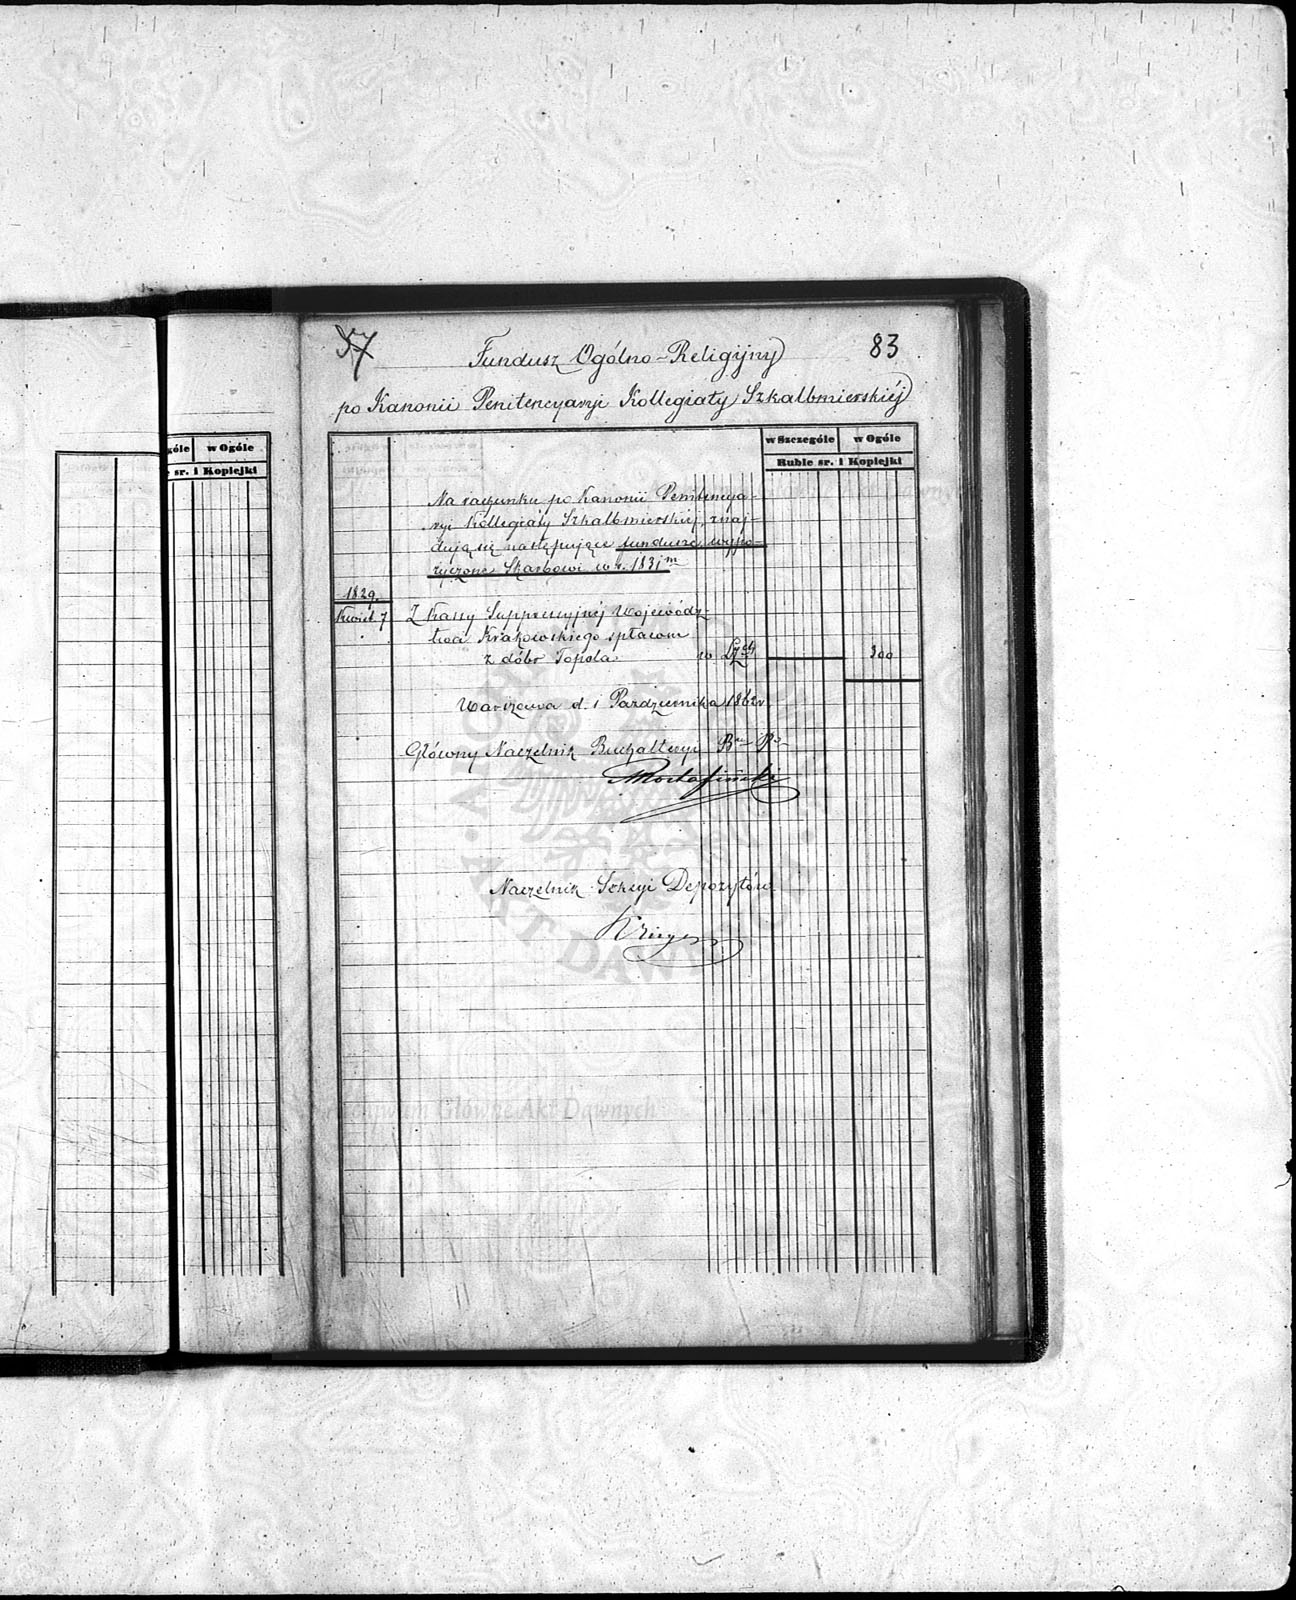 57
83
Fundusz Ogólno-Religijny
po Kanonii Penitencyaryi Kollegiaty Szkalbmierskiéj
góle w Ogóle
sr. i Kopiejki
w Szczególe w Ogóle
Ruble sr. i Kopiejki
Na rachunku po Kanonii Penitencya-
ryi Kollegiaty Szkalbmierskiéj, znaj-
dują się następujące fundusze wypo-
życzone Skarbowi w r. 1831 m
1829.
Kwiet. 7 Z Kassy Suppressyjnéj Wojewódz-
twa Krakowskiego spłacone
z dóbr Topola w 300
Warszawa d. 1 Października 1862 r.
Główny Naczelnik Buchalteryi
Naczelnik Sekcyi Depozytów
ARCHIWUM GŁÓWNE AKT DAWNYCH
Archiwum Główne Akt Dawnych